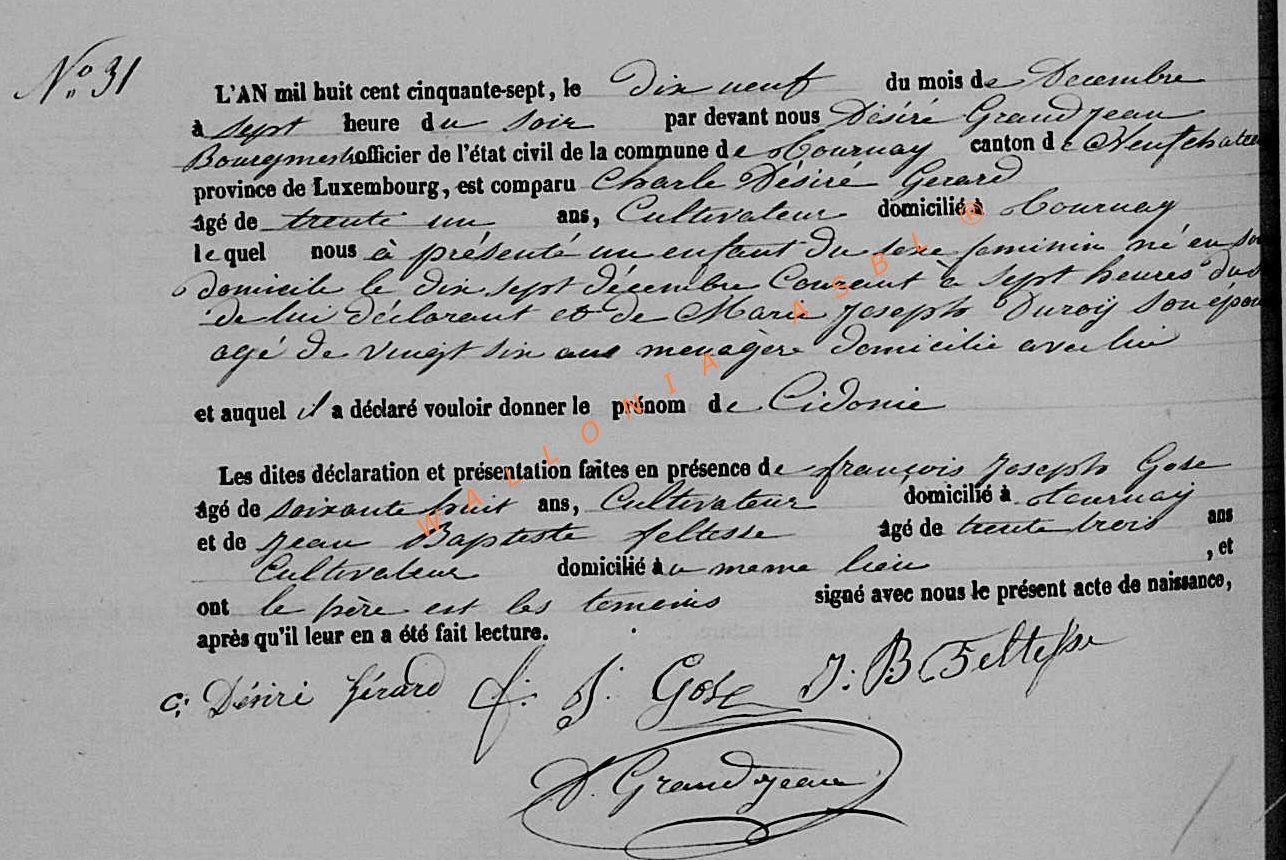 N° 31
L'AN mil huit cent cinquante-sept, le Dix neuf du mois de Decembre
à sept heure du soir par devant nous Désiré Grandjean
Bourgmestre officier de l'état civil de la commune de Tournay canton de Neufchateau
province de Luxembourg, est comparu Charle Désiré Gerard
âgé de trente un ans, Cultivateur domicilié à Tournay
lequel nous à présenté un enfant du sexe feminin né en son
domicile le dix sept décembre Courant à sept heures du
de lui déclarant et de Marie Joseph Duroÿ Son
agé de vingt six ans menagère domicilié avec lui
et auquel il a déclaré vouloir donner le prénom de Cidonie
Les dites déclaration et présentation faites en présence de françois Joseph Gose
âgé de soixante huit ans, Cultivateur domicilié à Tournay
et de Jean Baptiste feltesse âgé de trente trois ans
Cultivateur domicilié au meme lieu , et
ont le père est les temoins signé avec nous le présent acte de naissance,
après qu'il leur en a été fait lecture.
C: Désiré Gérard f: J: Gose J: B Feltesse
D. Grandjean
WALLONIA ASBL ®